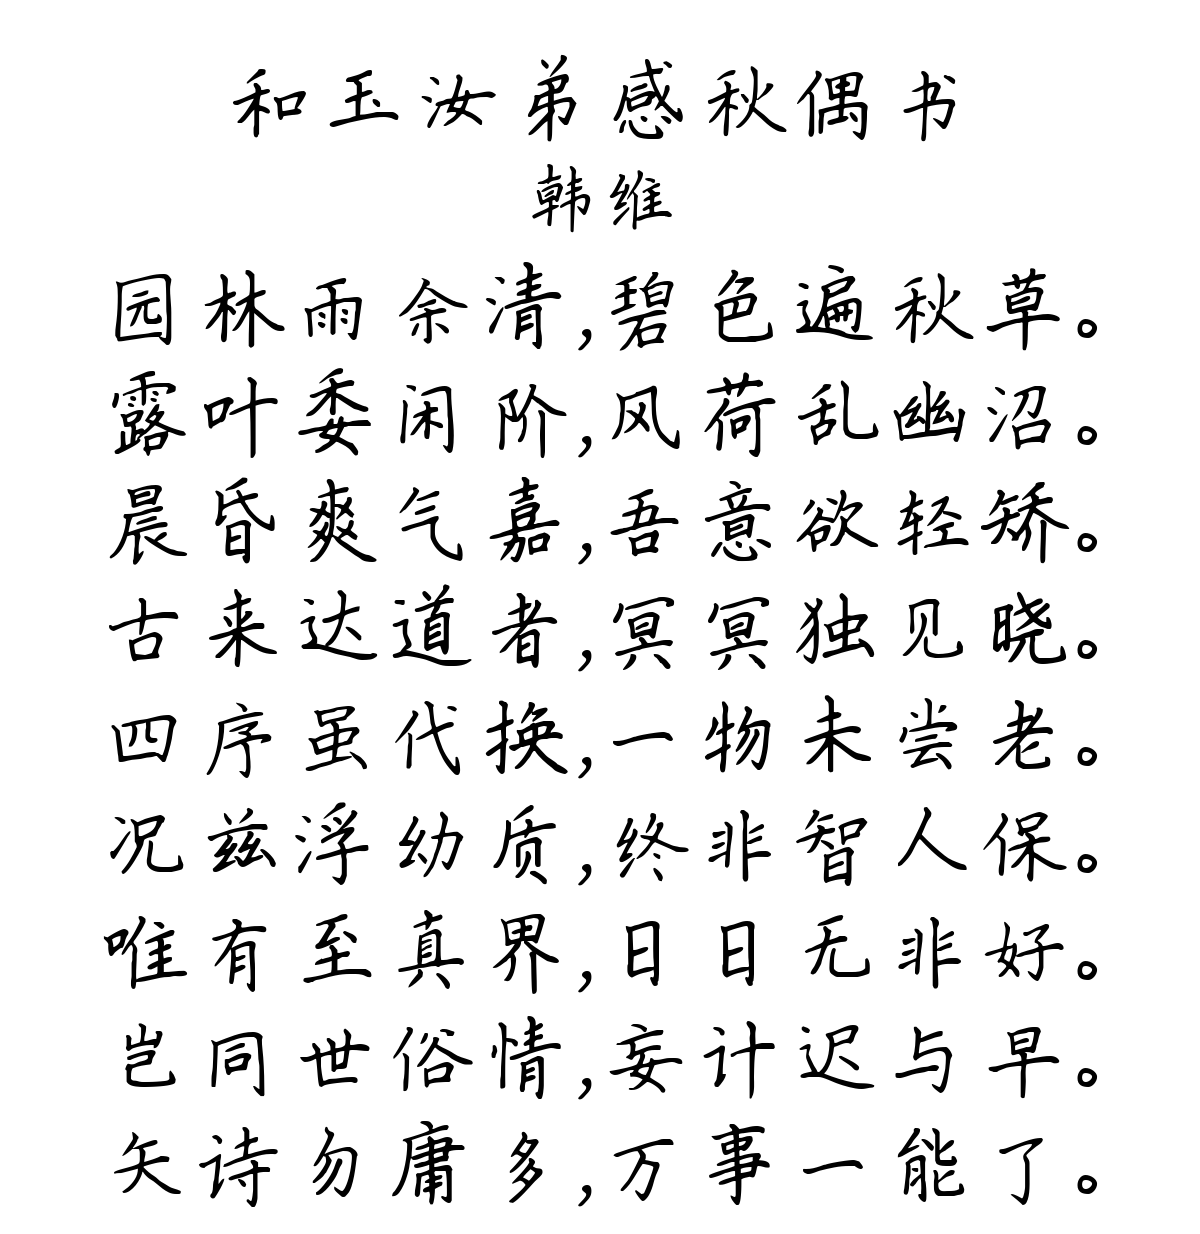 和玉汝弟感秋偶书
韩维
园林雨余清,碧色遍秋草。
露叶委闲阶,风荷乱幽沼。
晨昏爽气嘉,吾意欲轻矫。
古来达道者,冥冥独见晓。
四序虽代换,一物未尝老。
况兹浮幼质,终非智人保。
唯有至真界,日日无非好。
岂同世俗情,妄计迟与早。
矢诗勿庸多,万事一能了。